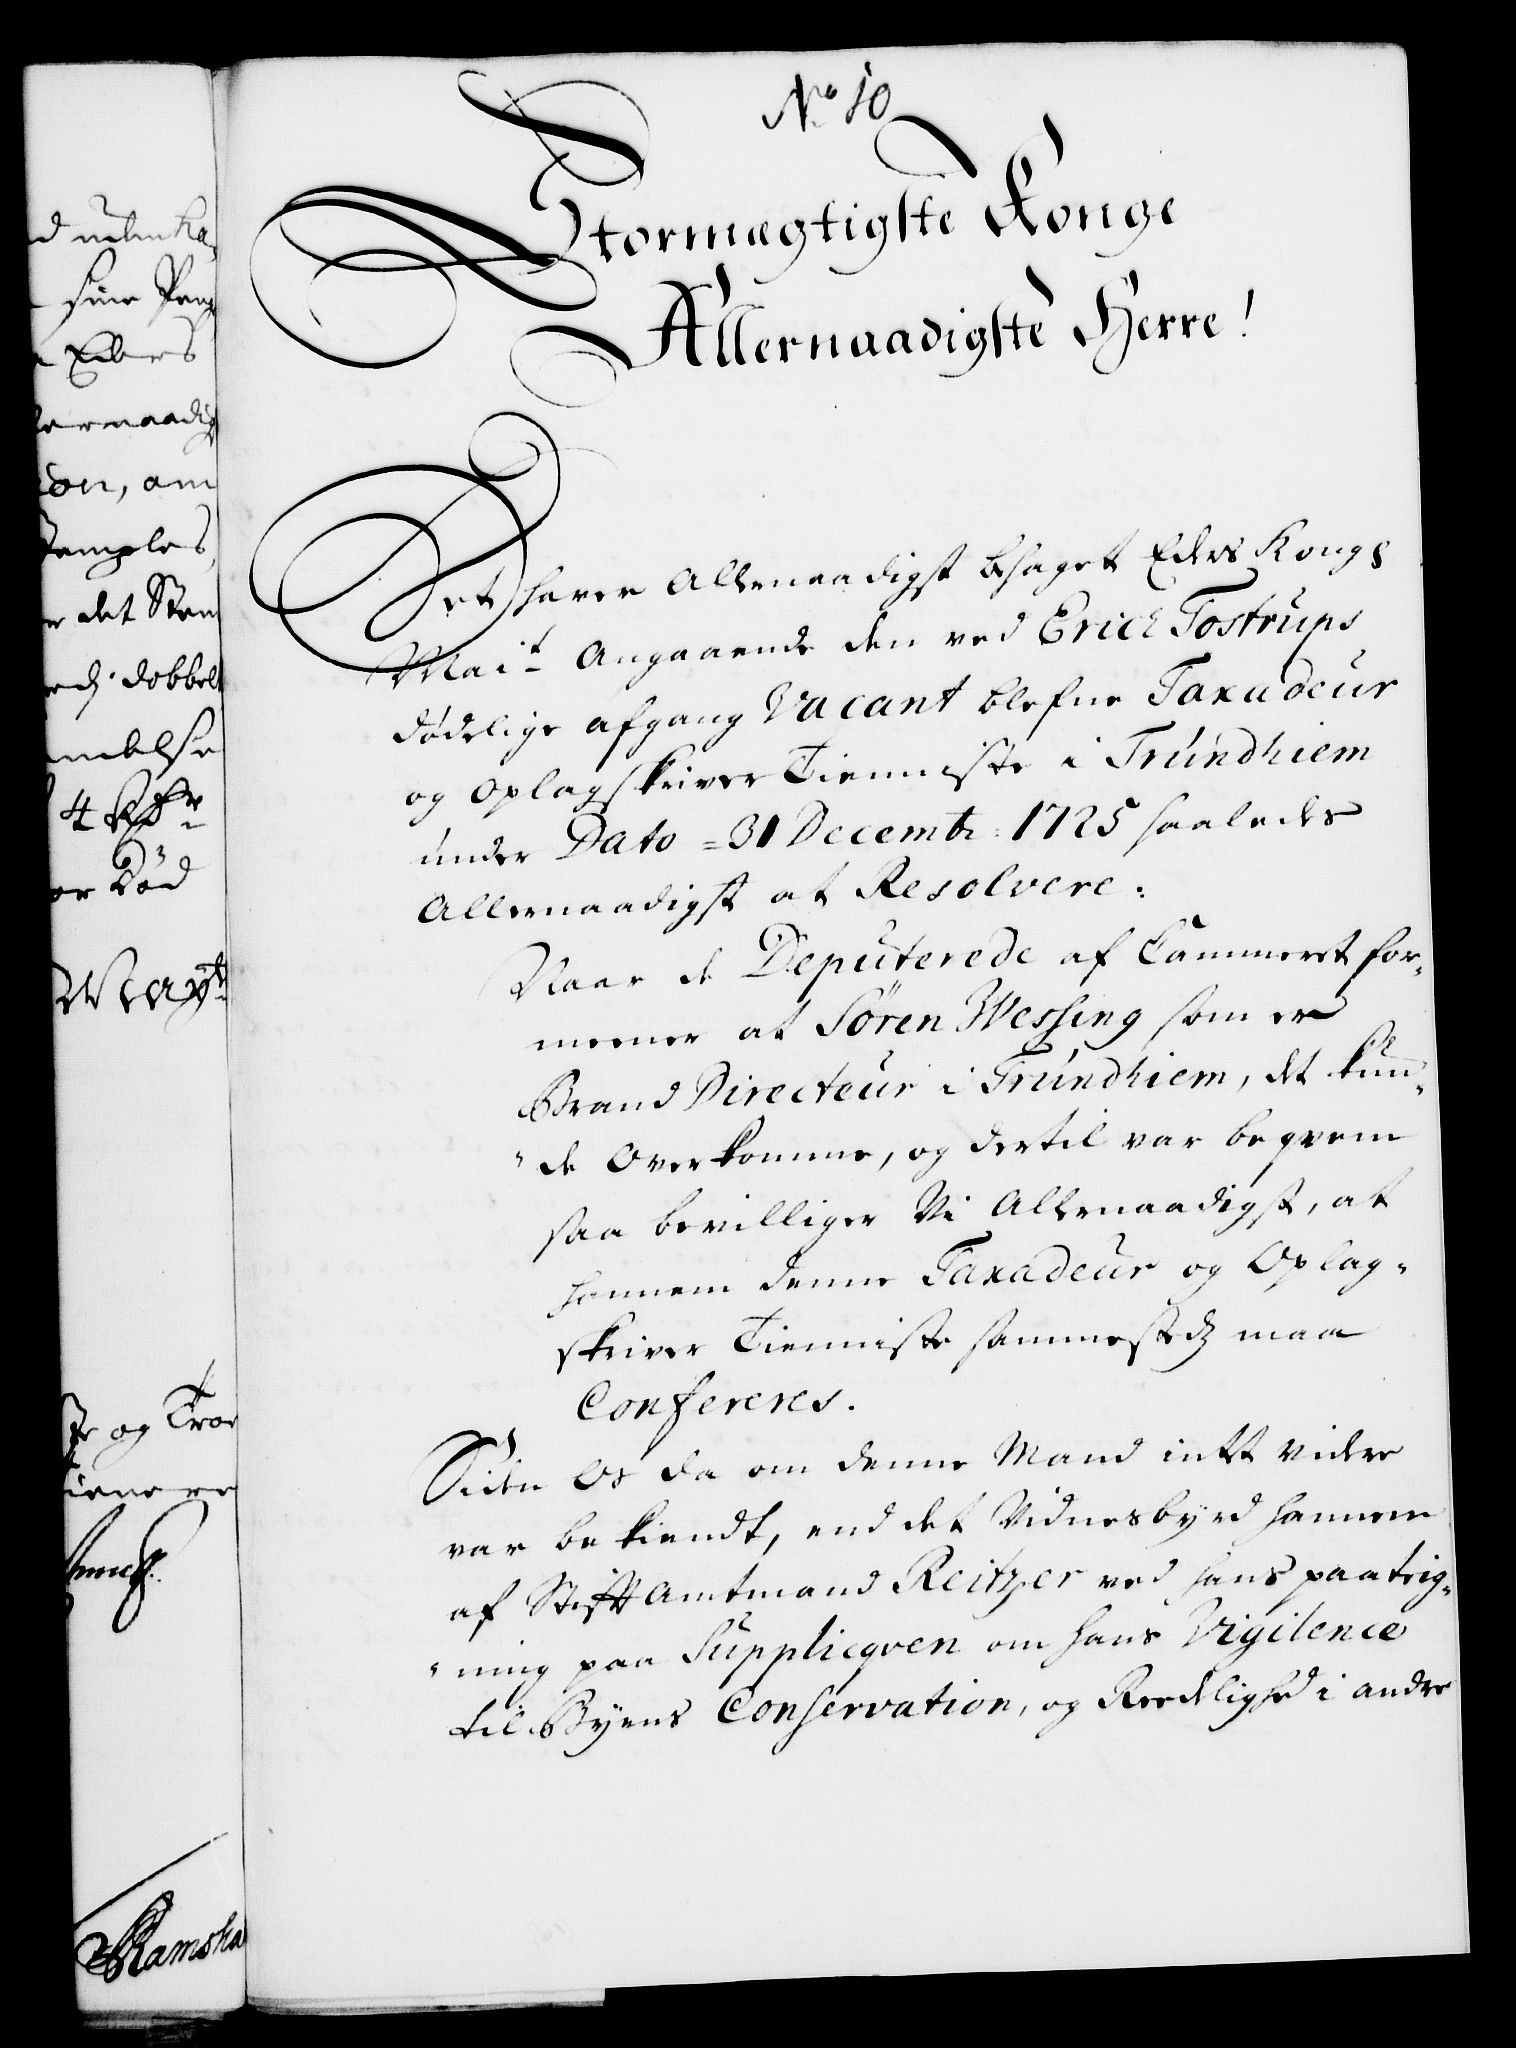 No 10
Stormægtigste Konge
Allernaadigste Herre!
Det haver Allernaadigst behaget Eders Kongs
Mait Angaaende den ved Erich Tostrups
dødelige afgang Vacant blefne Taxadeur
og Oplagskriver Tienniste i Trundhiem
under Dato = 31 Decembr: 1725 saaledes
Allernaadigst at Resolvere:
Naar de Deputerede af Cammeret for-
meener at Søren Wessing som er
Brand Directeur i Trundhiem, det kun-
"de Overkomme, og dertil var beqvem
saa bevilliger Vi Allernaadigst, at
hannem denne Taxadeur og Oplag-
skriver Tienniste sammestedz maa
Confereres.
Siden Os da om denne Mand intet videre
var bekiendt, end det Vidnesbyrd hannem
af Stiftamtmand Reitzer ved hans paateig-
"ning paa Supplicqven om hans Vigilence
til Byens Conservation, og Reedelighed i andre
sine
Eders
det
dobbelt
4
Død
Mayt
og
Ramsha